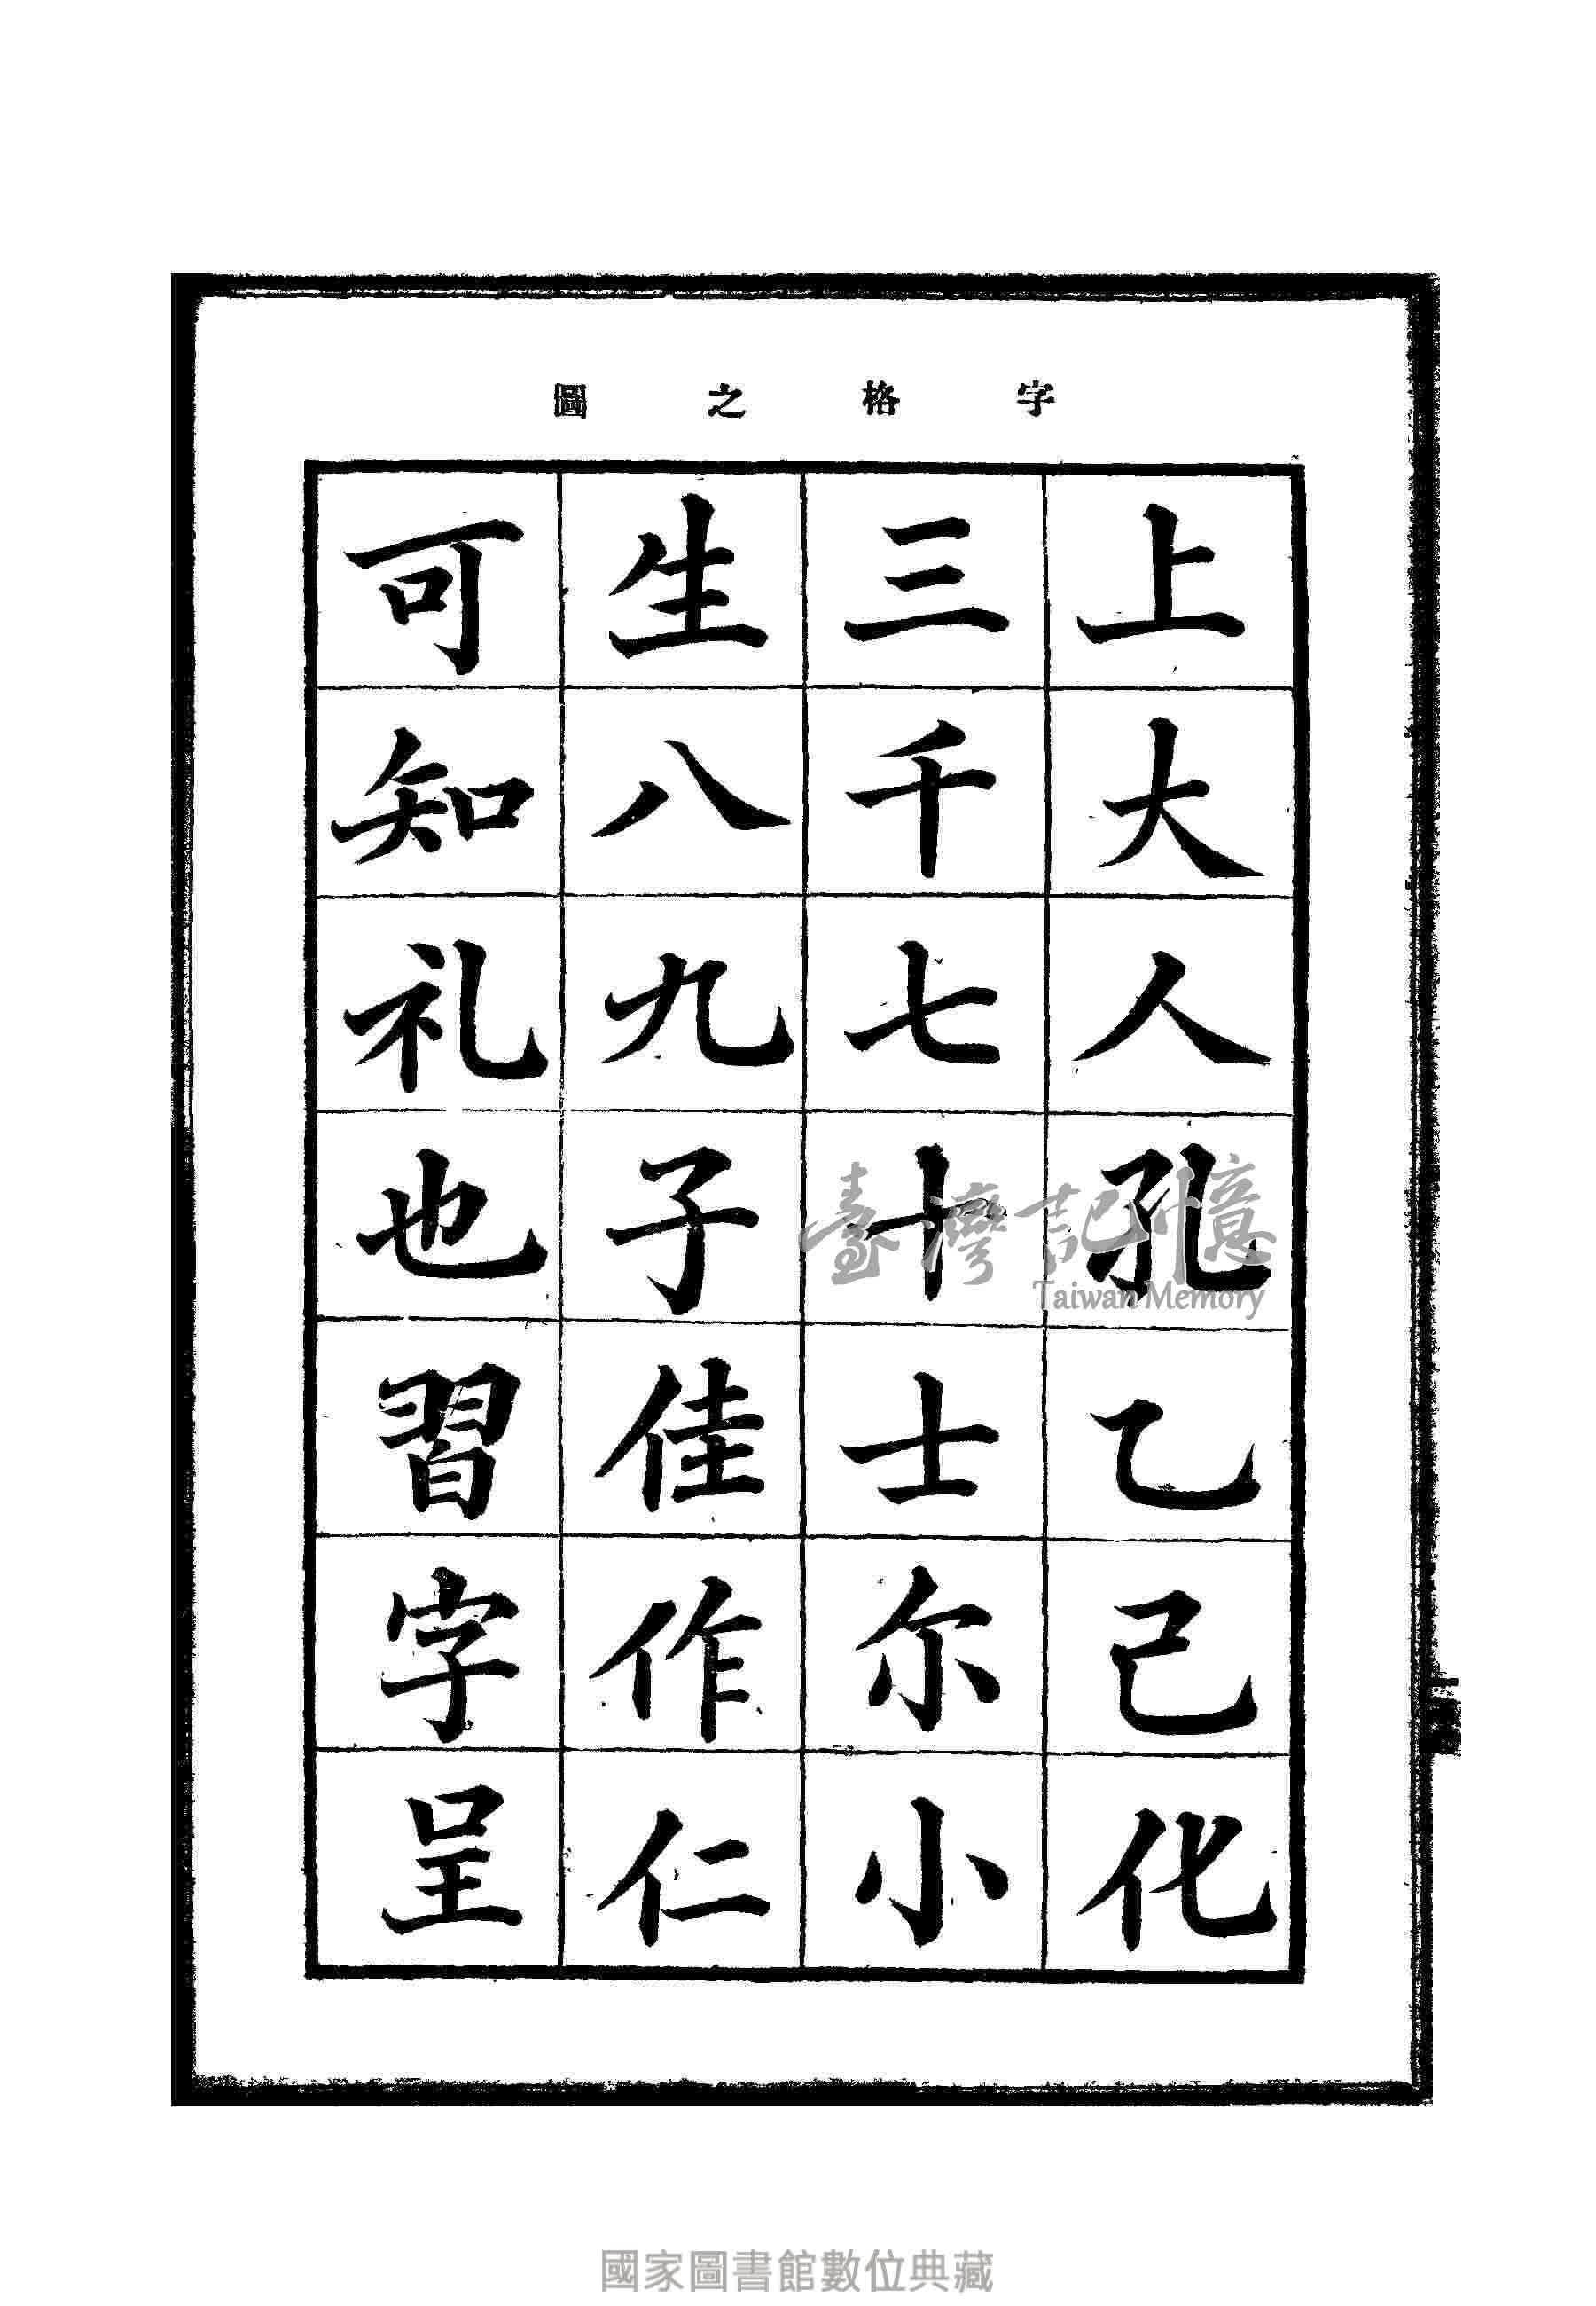 字格之圖
上大人孔乙己化
三千七十士尔小
生八九子佳作仁
可知礼也習字呈
臺灣記憶
Taiwan Memory
國家圖書館數位典藏